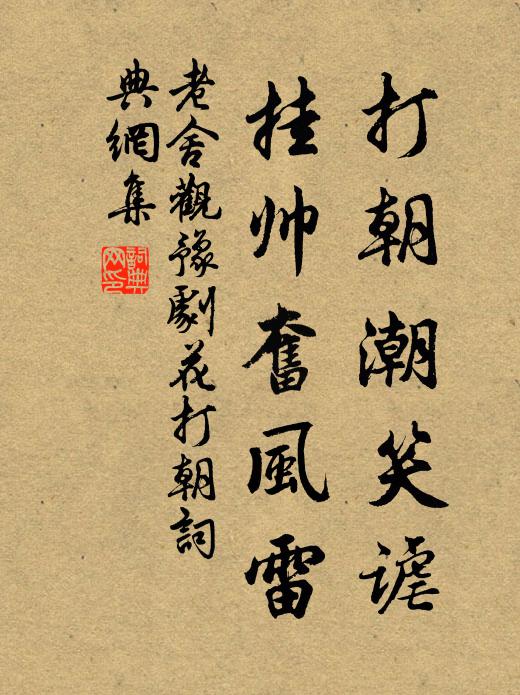 打朝潮笑謔
挂帅奮風雷
老舍觀豫劇花打朝詞
典網集
詞典
网印